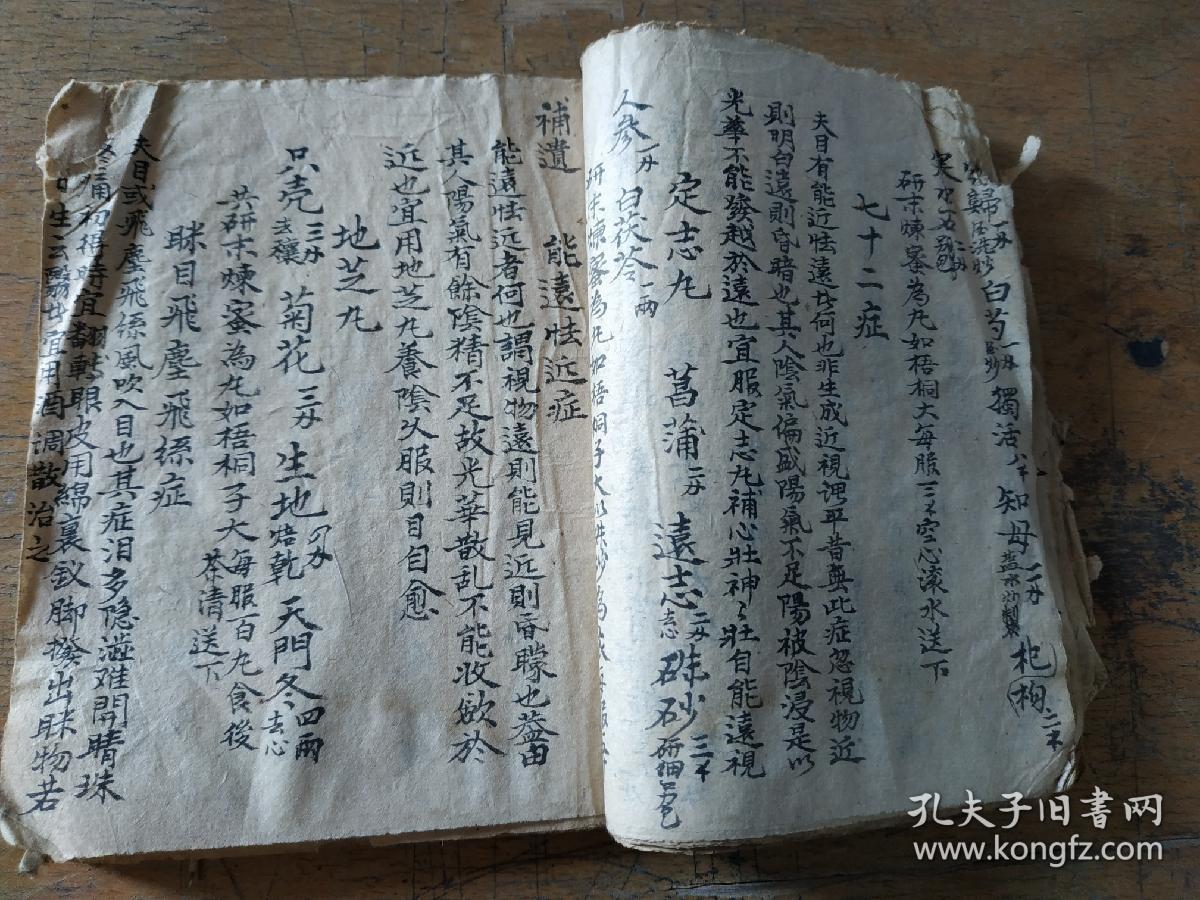 歸一分 酒洗炒 白芍一分 獨活八下 知母二分 盐水炒製 杞枸二不
研末煉蜜為丸如梧桐大每服三不空心滚水送下
七十二症
夫目有能近怯遠者何也非生成近視谓平昔無此症忽視物近
則明白遠則昏暗也其人陰氣偏盛陽氣不足陽被陰浸是以
光華不能發越於遠也宜服定志丸補心壯神々壯自能遠視
定志丸 菖蒲二分 遠志二分去志 硃砂三不研細
人參一分 白茯苓一兩
研末煉蜜為丸如梧桐子大以硃砂為衣
補遺 能遠怯近症
能遠怯近者何也謂視物遠則能見近則昏矇也益由
其人陽氣有餘陰精不足故光華散乱不能收歛於
近也宜用地芝丸養陰久服則目自愈
地芝丸
只壳三分去穰 菊花三分 生地焙乾四分 天門冬四兩去心
共研末煉蜜為丸如梧桐子大每服百丸食後
茶清送下
眯目飛塵飛絲症
夫目或飛塵飛絲風吹入目也其症泪多隐澁难開睛珠
疼痛初得時宜翻轉眼皮用綿裹釵脚撥出眯物若
日生云翳宜用酒調散治之
孔夫子旧书网
www.kongfz.com